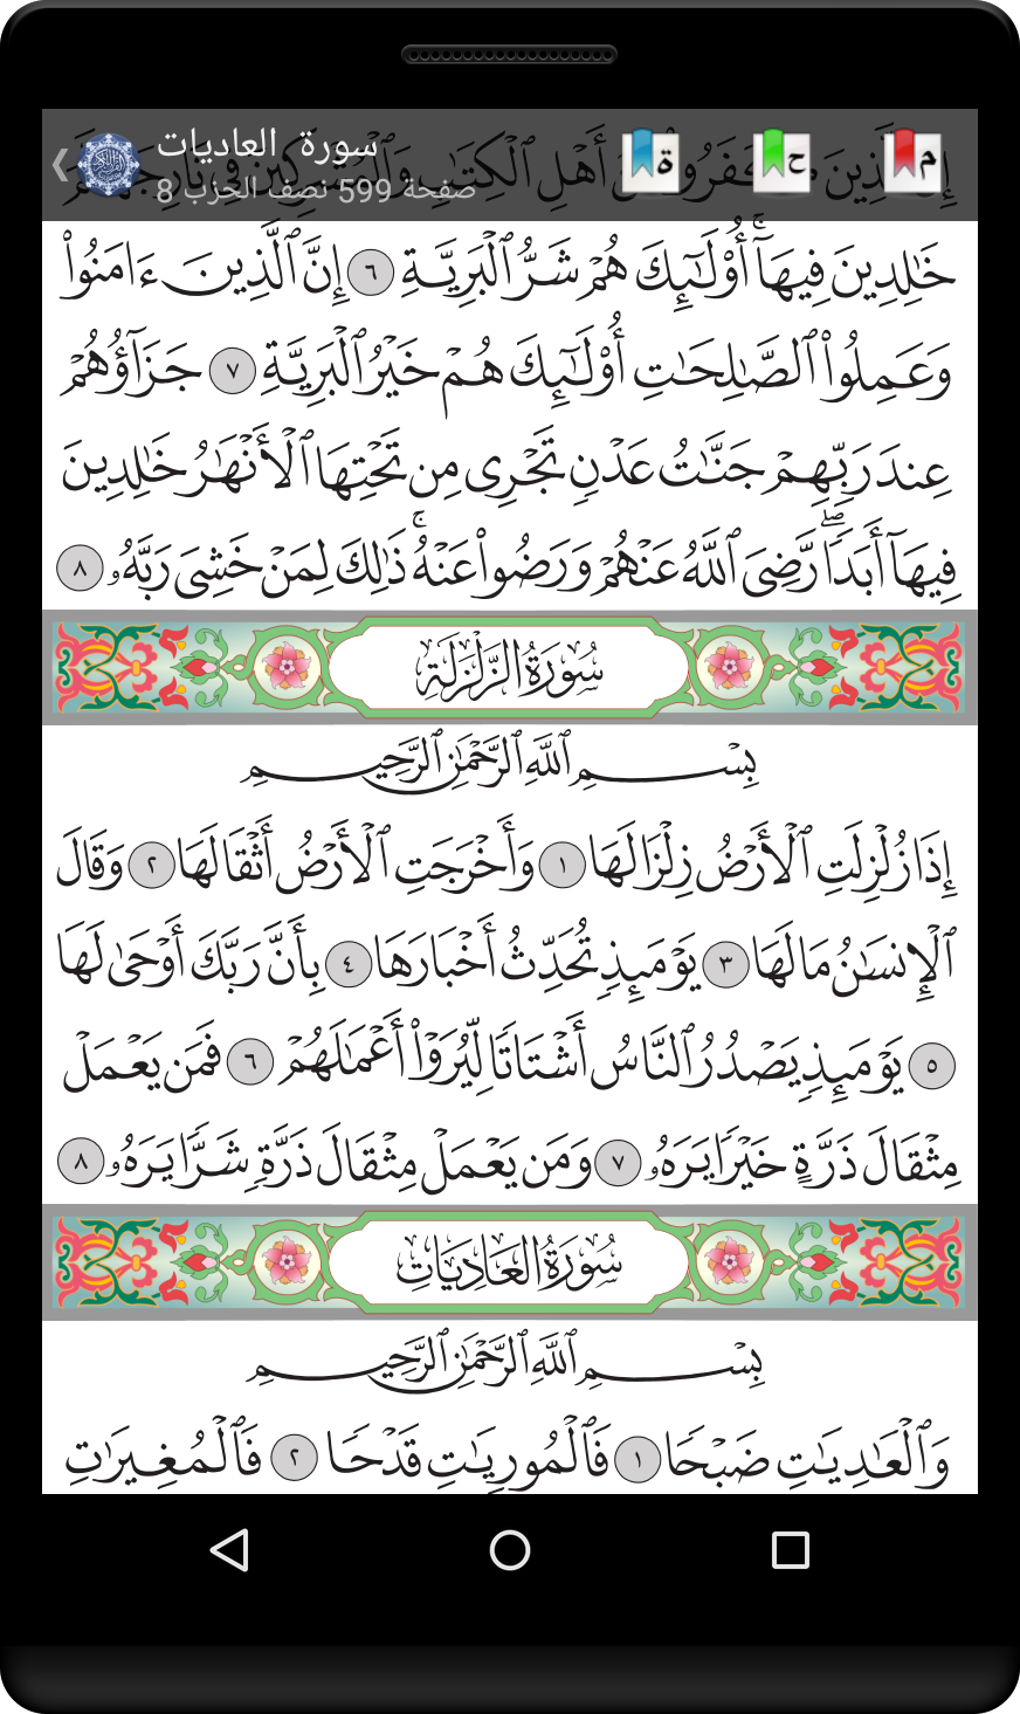 سورة العاديات
صفحة 599 نصف الحزب 8
م
ح
ة
خَٰلِدِينَ فِيهَآۚ أُوْلَٰٓئِكَ هُمۡ شَرُّ ٱلۡبَرِيَّةِ ٦ إِنَّ ٱلَّذِينَ ءَامَنُواْ
وَعَمِلُواْ ٱلصَّٰلِحَٰتِ أُوْلَٰٓئِكَ هُمۡ خَيۡرُ ٱلۡبَرِيَّةِ ٧ جَزَآؤُهُمۡ
عِندَ رَبِّهِمۡ جَنَّٰتُ عَدۡنٖ تَجۡرِي مِن تَحۡتِهَا ٱلۡأَنۡهَٰرُ خَٰلِدِينَ
فِيهَآ أَبَدٗاۖ رَّضِيَ ٱللَّهُ عَنۡهُمۡ وَرَضُواْ عَنۡهُۚ ذَٰلِكَ لِمَنۡ خَشِيَ رَبَّهُۥ ٨
سُورَةُ الزَّلْزَلَةِ
بِسۡمِ ٱللَّهِ ٱلرَّحۡمَٰنِ ٱلرَّحِيمِ
إِذَا زُلۡزِلَتِ ٱلۡأَرۡضُ زِلۡزَالَهَا ١ وَأَخۡرَجَتِ ٱلۡأَرۡضُ أَثۡقَالَهَا ٢ وَقَالَ
ٱلۡإِنسَٰنُ مَا لَهَا ٣ يَوۡمَئِذٖ تُحَدِّثُ أَخۡبَارَهَا ٤ بِأَنَّ رَبَّكَ أَوۡحَىٰ لَهَا
٥ يَوۡمَئِذٖ يَصۡدُرُ ٱلنَّاسُ أَشۡتَاتٗا لِّيُرَوۡاْ أَعۡمَٰلَهُمۡ ٦ فَمَن يَعۡمَلۡ
مِثۡقَالَ ذَرَّةٍ خَيۡرٗا يَرَهُۥ ٧ وَمَن يَعۡمَلۡ مِثۡقَالَ ذَرَّةٖ شَرّٗا يَرَهُۥ ٨
سُورَةُ العَادِيَاتِ
بِسۡمِ ٱللَّهِ ٱلرَّحۡمَٰنِ ٱلرَّحِيمِ
وَٱلۡعَٰدِيَٰتِ ضَبۡحٗا ١ فَٱلۡمُورِيَٰتِ قَدۡحٗا ٢ فَٱلۡمُغِيرَٰتِ